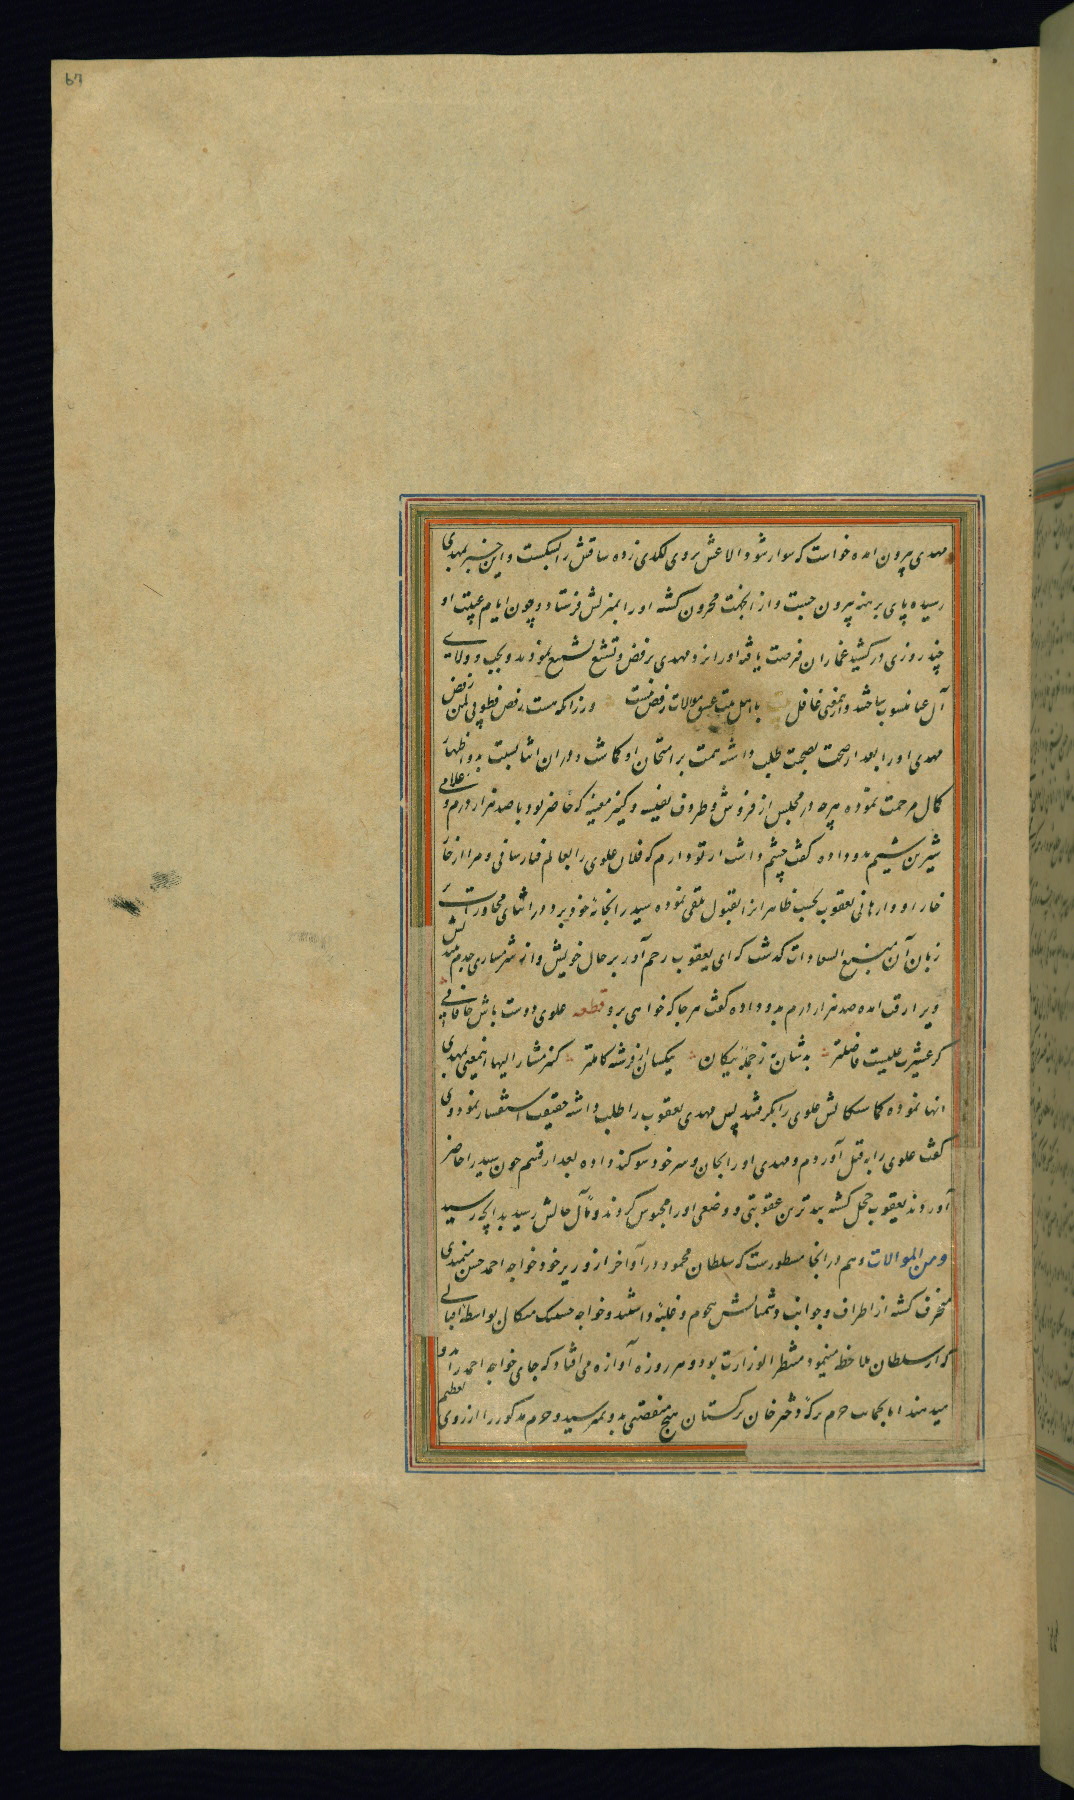 مهدی بیرون آمده خواست که سوار شود الاغش بروی لکدی زده ساقش را بشکست و این خبر بمهدی
رسیده پای برهنه بیرون جست و از انجهت محزون کشته او را بمنزلش فرستاد و چون ایام غیبت او
چند روزی در کشید غمازان فرصت یافته او را نزد مهدی برفض و تشیع نمودند و بحب و ولای
آل عبا منسوب ساختند و از معنی غافل با اهل موالات رفض نیست ورزانکه هست رفض فطوبی لمن رفض
مهدی او را بعد از صحت بصحبت طلب داشته همت بر امتحان او کماشت و در ان اثنا نسبت بدو اظهار
کمال مرحمت نموده هرچه در مجلس از فروش و ظروف نفیسه و کنیز مغنیه که حاضر بود با صد هزار درم و غلامی
شیرین شیم بدو داده کفت چشم داشت از تو دارم که فلان علوی را بعالم فنا رسانی و مرا از خار
خار او وارهانی یعقوب بحسب ظاهر انرا بقبول تلقی نموده سید را بخانه خود برد و در اثنای محاورات
زبان آن منبع السعادات کذشت که ای یعقوب رحم آور بر حال خویش وانه شرمساری جدم
ویرا رقت امده صد هزار درم بدو داده کفت هرجا که خواهی برو قطعه علوی دوست باش خاقانی
کز عشیرت علیست فاضلتر بد شان به ز جمله نیکان یکسان از فرشته کاملتر کنیز مشار الیها اینمعنی بمهدی
انها نموده علوی را بکرفتند پس مهدی یعقوب را طلب داشته حقیقت استفسار نمود وی
کفت علوی را به قتل آوردم و مهدی او را بجان و سر خود سوکند داده بعد از قسم چون سید را حاضر
آوردند یعقوب خجل کشته ببدترین عقوبتی و وضعی او را محبوس کردند و مآل حالش رسید بدانچه رسید
ومن الموالات و هم در انجا مسطورست که سلطان محمود در آواخر از وزیر خود خواجه احمد حسن میمندی
منحرف کشته از اطراف و جوانب دشمنانش هجوم و غلبه داشتند و خواجه حسنک میکال بواسطه اقبالی
که از سلطان ملاحظه مینمود منتظر الوزارت بود و هر روزه آوازه می افتاد که جای خواجه احمد را بدو
میدهند اما بحمایت حرم بزرک دختر خان ترکستان هیچ منقصتی بدو نمیرسید و حرم مذکور را از روی تعظیم